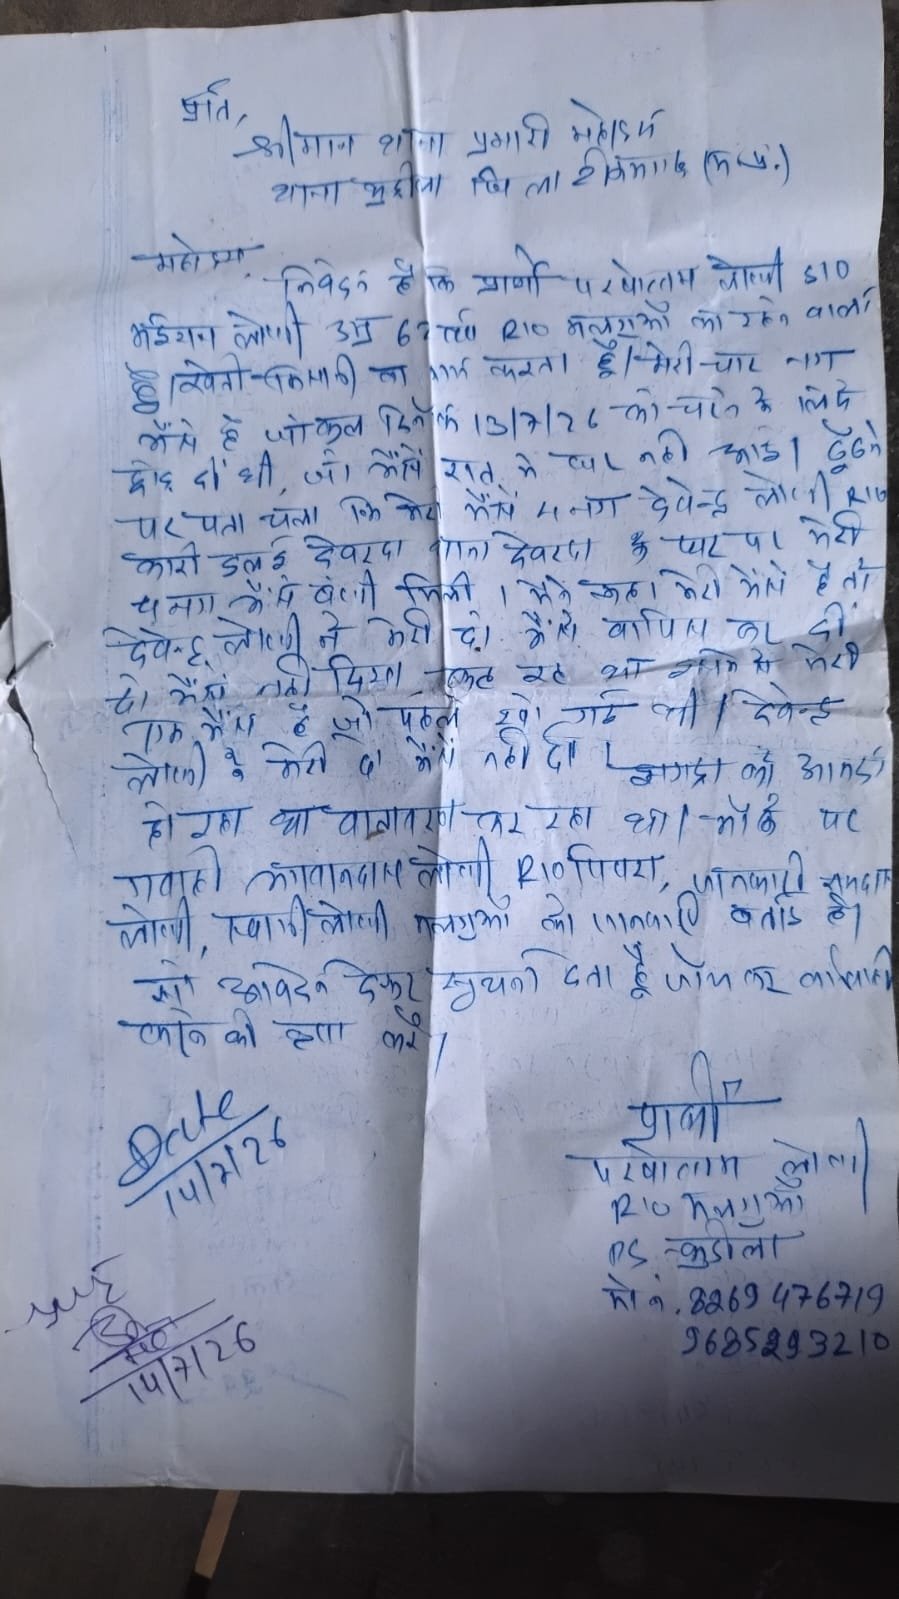 प्रति,
श्रीमान थाना प्रभारी महोदय
थाना कुडीला जिला टीकमगढ़ (म.प्र.)
महोदय,
निवेदन है कि प्रार्थी परषोत्तम लोधी S/O
लोधी उम्र 62 वर्ष R/O मलगुवाँ का रहने वाला
हूँ। खेती किसानी का कार्य करता हूँ। मेरी चार नग
भैंसे है जो कल दिनाँक 13/7/26 को चरने के लिये
छोड़ दी थी, जो भैंसे रात में घर नही आई। ढूँढने
पर पता चला कि मेरी भैंसे 4 नग देवेन्द्र लोधी R/O
देवरदा थाना देवरदा के घर पर मेरी
4 नग भैंसे बंधी मिली। मैंने कहा मेरी भैंसे है तो
देवेन्द्र लोधी ने मेरी दो भैंसे वापिस कर दी
दो भैंसे नही दिया कह रहा था इनमें से मेरी
एक भैंस है जो पहले खो गई थी। देवेन्द्र
लोधी ने मेरी दो भैंसे नही दी। झगड़ा को आमदा
हो रहा था वातावरण कर रहा था। मौके पर
गवाही भगवानदास लोधी R/O पिपरा, जानकारी रामदास
लोधी, लोधी मलगुवाँ को जानकारी बताई है।
सो आवेदन देकर सूचना देता हूँ जाँच कर कार्यवाही
करने की कृपा करें।
Date
14/7/26
प्रार्थी
परषोत्तम लोधी
R/O मलगुवाँ
PS. कुडीला
मो नं. 8269476719
9685293210
14/7/26